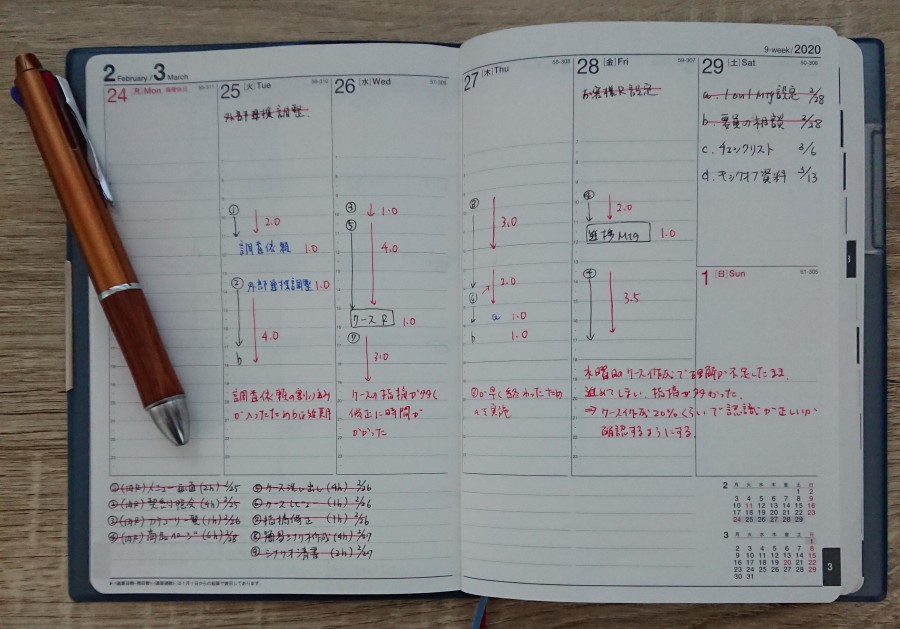 2 February / 3 March
9-week/2020
24 [月] Mon 振替休日 55-311
25 [火] Tue 56-310
26 [水] Wed 57-309
27 [木] Thu 58-308
28 [金] Fri 59-307
29 [土] Sat 60-306
外部単接調整
お客様R設定
a. 1on1Mtg設定 2/28
b. 要員の相談 2/28
c. チェックリスト 3/6
d. キックオフ資料 3/13
1 [日] Sun 61-305
① 2.0
調査依頼 1.0
② 外部単接調整 1.0
4.0
b
調査依頼の割り込み
が入ったためbは延期
③ 1.0
⑤ 4.0
ケースR 1.0
⑦ 3.0
ケースの指摘が多く
修正に時間が
かかった
⑧ 3.0
2.0
a 1.0
b 1.0
が早く終わったため
て実施
④ 2.0
進捗Mtg 1.0
④ 3.5
水曜のケース作成で理解が不足したまま
進めてしまい、指摘が多かった。
⇒ケース作成20%くらいで認識が正しいか
確認するようにする
①(内部)メニュー画面(2h) 2/25
②(内部)
③(内部)カテゴリ一覧(1h) 2/26
④(内部)商品ページ(6h) 2/28
⑤ケース洗い出し(4h) 2/26
⑥ケースレビュー(1h) 2/26
⑦指摘修正(1h) 2/26
⑧簡易シナリオ作成(4h) 2/27
⑨シナリオ清書(2h) 2/27
2 月 火 水 木 金 土 日
1 2
3 4 5 6 7 8 9
10 11 12 13 14 15 16
17 18 19 20 21 22 23
24 25 26 27 28 29
3 月 火 水 木 金 土 日
1
2 3 4 5 6 7 8
9 10 11 12 13 14 15
16 17 18 19 20 21 22
23 24 25 26 27 28 29
30 31
3